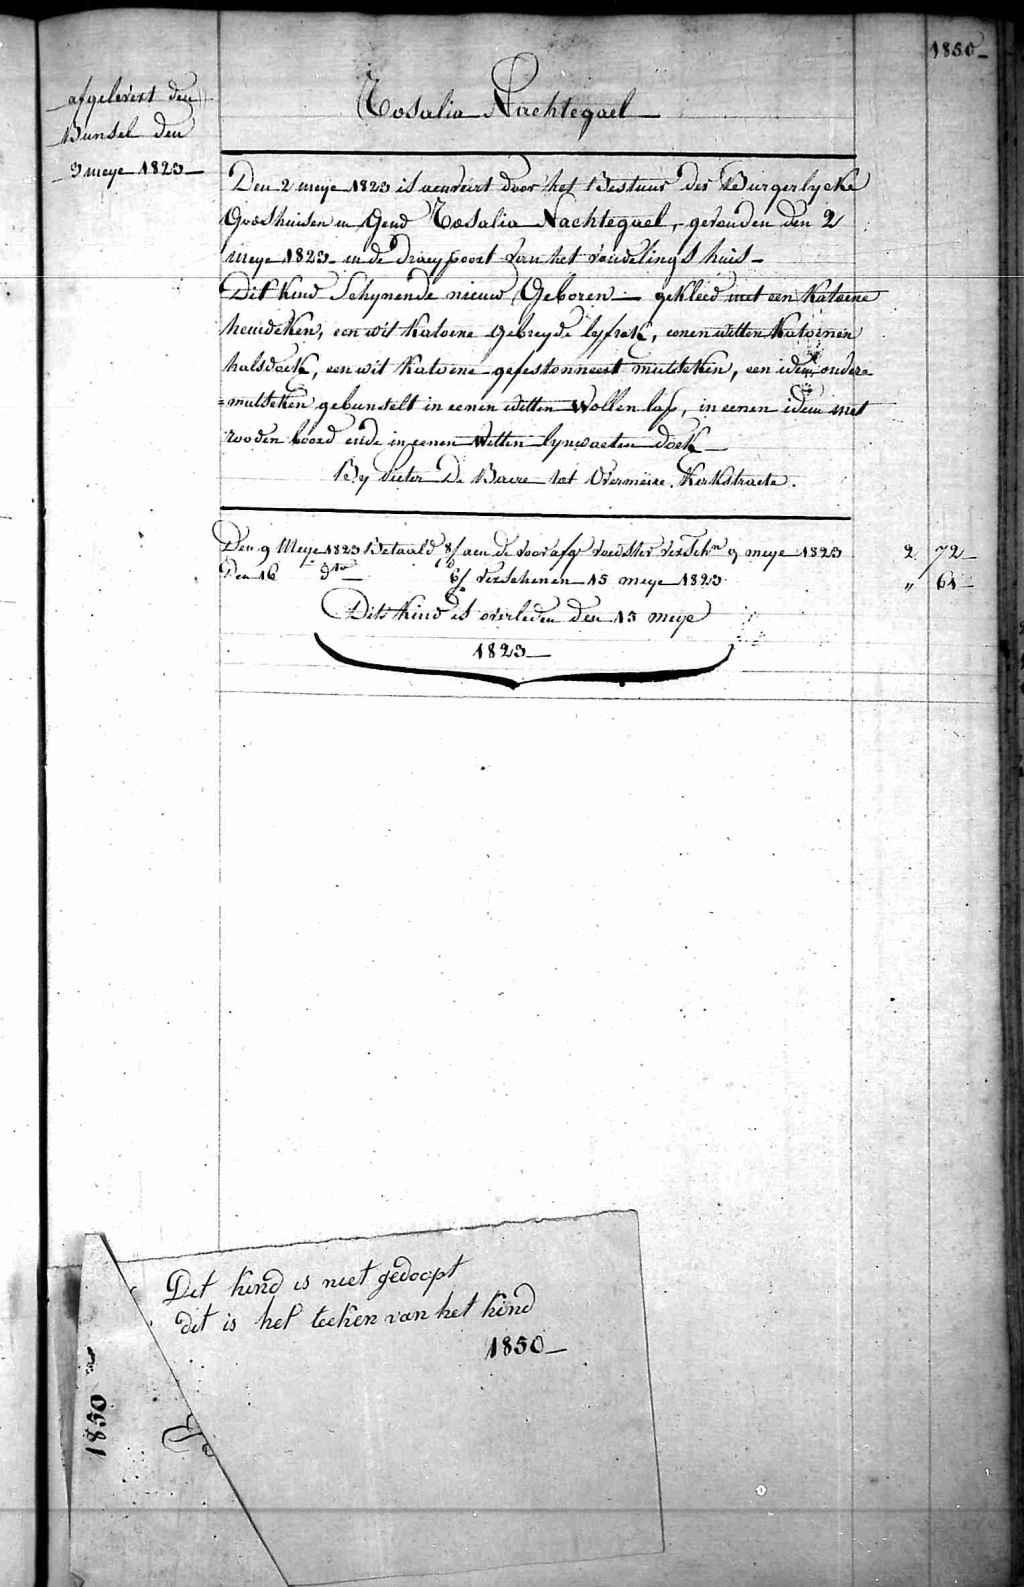 1850
afgelevert den
Bunsel den
3 meye 1823
Rosalia Nachtegael
Den 2 meye 1823 is aenveirt door het Bestuur der Burgerlycke
Godshuisen in Gend Rosalia Nachtegael, gevonden den 2
meye 1823 in de draeypoort van het vondelings huis
Dit kind Schynende nieuw Geboren gekleed met een katoene
hemdeken, een wit katoene gebreyde lyfrok, eenen witten katoenen
halsdoek, een wit katoene gefestonneert mutsken, een idem ondere
mutsken gebunselt in eenen witten wollen lap, in eenen idem met
rooden boord ende in eenen witten lynwaeten doek
By Pieter De Baere tot Overmeire Kerkstraete.
Den 9 Meye 1823 Betaald 8/ aen de voorafge voedster versch.n 9 meye 1823 2 72
Den 16 d.to 6/ verschenen 15 meye 1823 " 61
Dit kind is overleden den 15 meye
1823
Dit kind is niet gedoopt
dit is het teeken van het kind
1850
1850